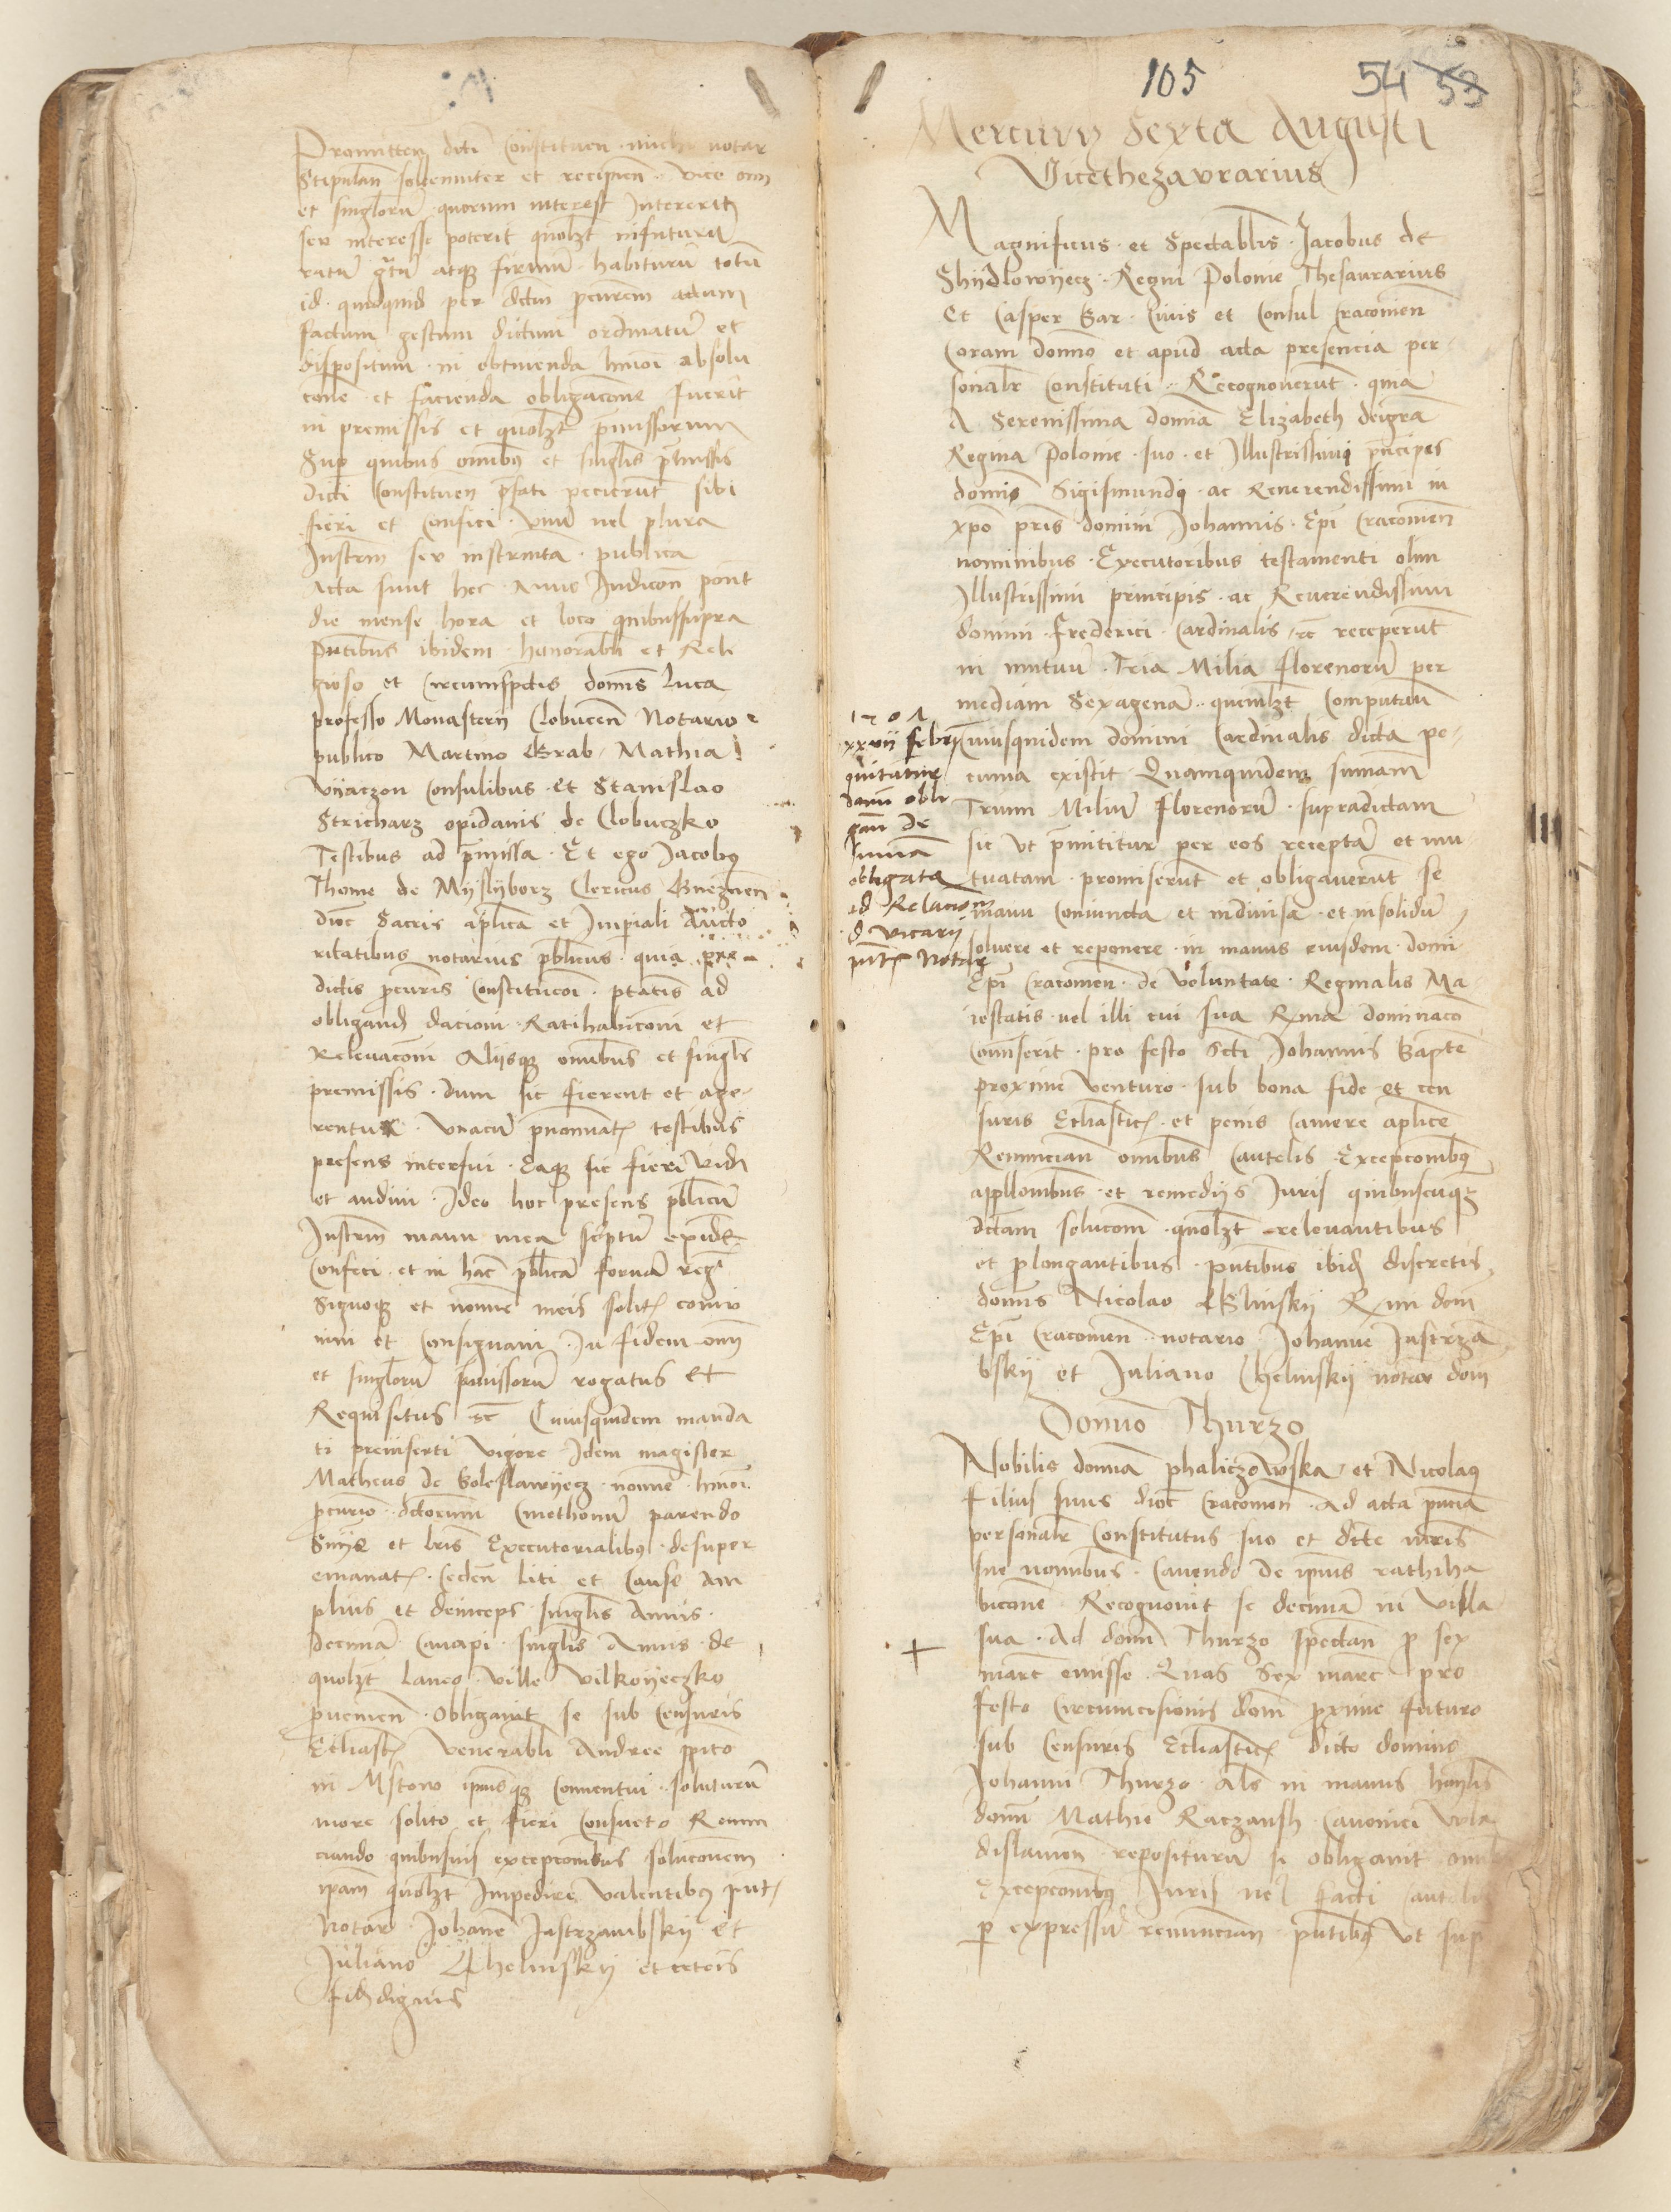 Promitten dicti Constituen michi notar
Stipulan solenniter et recipien vice omn
et singlorum quorum interest Intererit
seu interesse poterit quolzt infuturum
ratum gratum atque firmum habiturum totum
id quidquid per dictum procurem actum
factum gestum dictum ordinatum et
dispositum in obtinenda hmoi absolu
cone et facienda obligacone fuerit
in premissis et quolzt premissorum
Super quibus omnibus et singlis premissis
dicti Constituen prefati pecierunt sibi
fieri et Confici unum vel plura
Instrm seu instrmta publica
Acta sunt hec Annis Indicon pont
die mense hora et loco quibussupra
Pntibus ibidem honorabli et Reli
gioso et Circumspectis domis Luca
professo Monasterij Clobucen Notario
publico Martino Grab Mathia
Vijaczon Consulibus et Stanislao
Stricharz opidanis de Clobuczko
Testibus ad premissa Et ego Jacobus
Thome de Mijslyborz Clericus Gneznen
dioc Sacris aplica et Imperiali Aucto
ritatibus notarius publicus quia pre
dictis procuris Constitucoi ptatis ad
obligand dacioni Ratihabicioni et
Relevacom Alijsque omnibus et singlis
premissis dum sic fierent et age
rentur Unacum pnominatis testibus
presens interfui Eaque sic fieri vidi
et audivi Ideo hoc presens publicum
Instrm manu mea scriptum exinde
Confeci et in hanc publicam formam regi
Signoque et nomine meis solitis comu
nivi et Consignavi In fidem omn
et singlorum premissorum rogatus et
Requisitus etc Cuiusquidem manda
ti preinserti vigore Idem magister
Matheus de Boleslawijecz nomine hmoi
procurio dictorum Cmethonum parendo
Snijs et lris Executorialibus desuper
emanatis Ceden liti et Cause Am
plius et deinceps singlis Annis
decimam Canapi singlis Annis de
quolzt laneo ville Vilkoyeczko
provenien Obligavit se sub Censuris
Ecliasticis Venerabli Andree ppito
in Mstow ipsiusque Conventui soluturum
more solito et fieri Consueto Renun
ciando quibusvis excepconibus solucionem
ipam quolzt Impedire valentibus pnt
Notar Johanne Jastrzambskij et
Juliano Chelmskij et ceteris
fidedignis
105 54 53
Mercurij Sexta Augusti
Vicethezaurarius
Magnificus et Spectablis Jacobus de
Shijdlowijecz Regni Polonie Thesaurarius
et Casper Bar Civis et Consul Cracovien
Coram domino et apud acta presencia per
sonalr Constituti Recognoverunt quia
A Serenissima domina Elizabeth deigra
Regina Polonie suo et Illustrissimi principis
domis Sigismundi ac Reverendissimi in
xpo pris domini Johannis Epi Cracovien
nominibus Executoribus testamenti olim
Illustrissimi principis ac Reverendissimi
domini Frederici Cardinalis etc receperunt
in mutuum Tria Milia florenorum per
mediam Sexagenam quemlzt Computatum
Cuiusquidem domini Cardinalis dicta pe
cunia existit Quamquidem summam
Trium Milium florenorum supradictam
sic ut premittitur per eos receptam et mu
tuatam promiserunt et obligaverunt se
manu Coniuncta et indivisa et insolidum
solvere et reponere in manus eiusdem domi
Epi Cracovien de voluntate Reginalis Ma
iestatis vel illi cui sua Rma dominaco
Comiserit pro festo Scti Johannis Bapte
proxime venturo sub bona fide et cen
suris Ecliasticis et penis Camere aplice
Renuncian omnibus Cautelis Excepconibus
appllonibus et remedijs Juris quibuscumque
dictam solucom quolzt relevantibus
et prolongantibus pntibus ibidem discretis
domis Nicolao Glinskij Rmi dom
Epi Cracovien notario Johanne Jastrza
bskij et Juliano Chelmskij notar dom
1504
xxvij febr
quitatur
obli
de
summa
obligata
ad Relacion
d vicarij
Notar
Domino Thurzo
Nobilis domina phaliczowska et Nicolaus
filius suus dioc Cracovien Ad acta pncia
personalr Constitutus suo et dicte mris
sue nominibus Cavendo de ipsius rathiha
bicione Recognovit se decimam in Villa
sua Ad domi Thurzo spectan pro sex
marc emisse Quas Sex marc pro
festo Circumcisionis domi proxime futuro
sub Censuris Ecliasticis dicto domino
Johanni Thurzo Als in manus honlis
domi Mathie Raczansh Canonici Wla
dislavien repositurum se obligavit omni
Excepconibus Juris vel facti Cautelis
per expressum renuncian pntibus ut sup